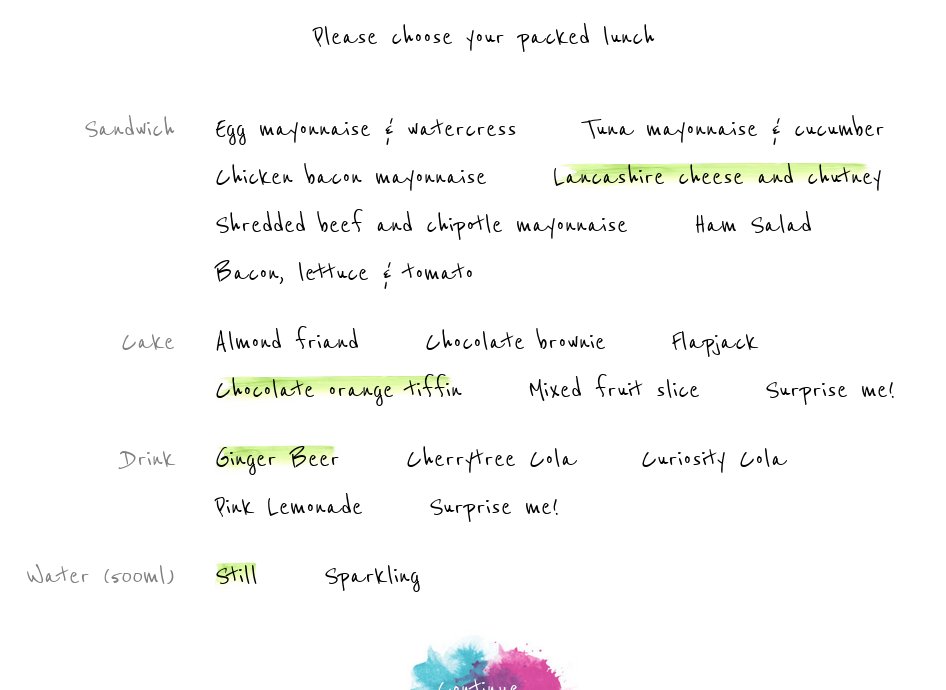 Please choose your packed lunch
Sandwich Egg mayonnaise & watercress Tuna mayonnaise & cucumber
Chicken bacon mayonnaise Lancashire cheese and chutney
Shredded beef and chipotle mayonnaise Ham Salad
Bacon, lettuce & tomato
Cake Almond friand Chocolate brownie Flapjack
Chocolate orange tiffin Mixed fruit slice Surprise me!
Drink Ginger Beer Cherrytree Cola Curiosity Cola
Pink Lemonade Surprise me!
Water (500ml) Still Sparkling
Continue